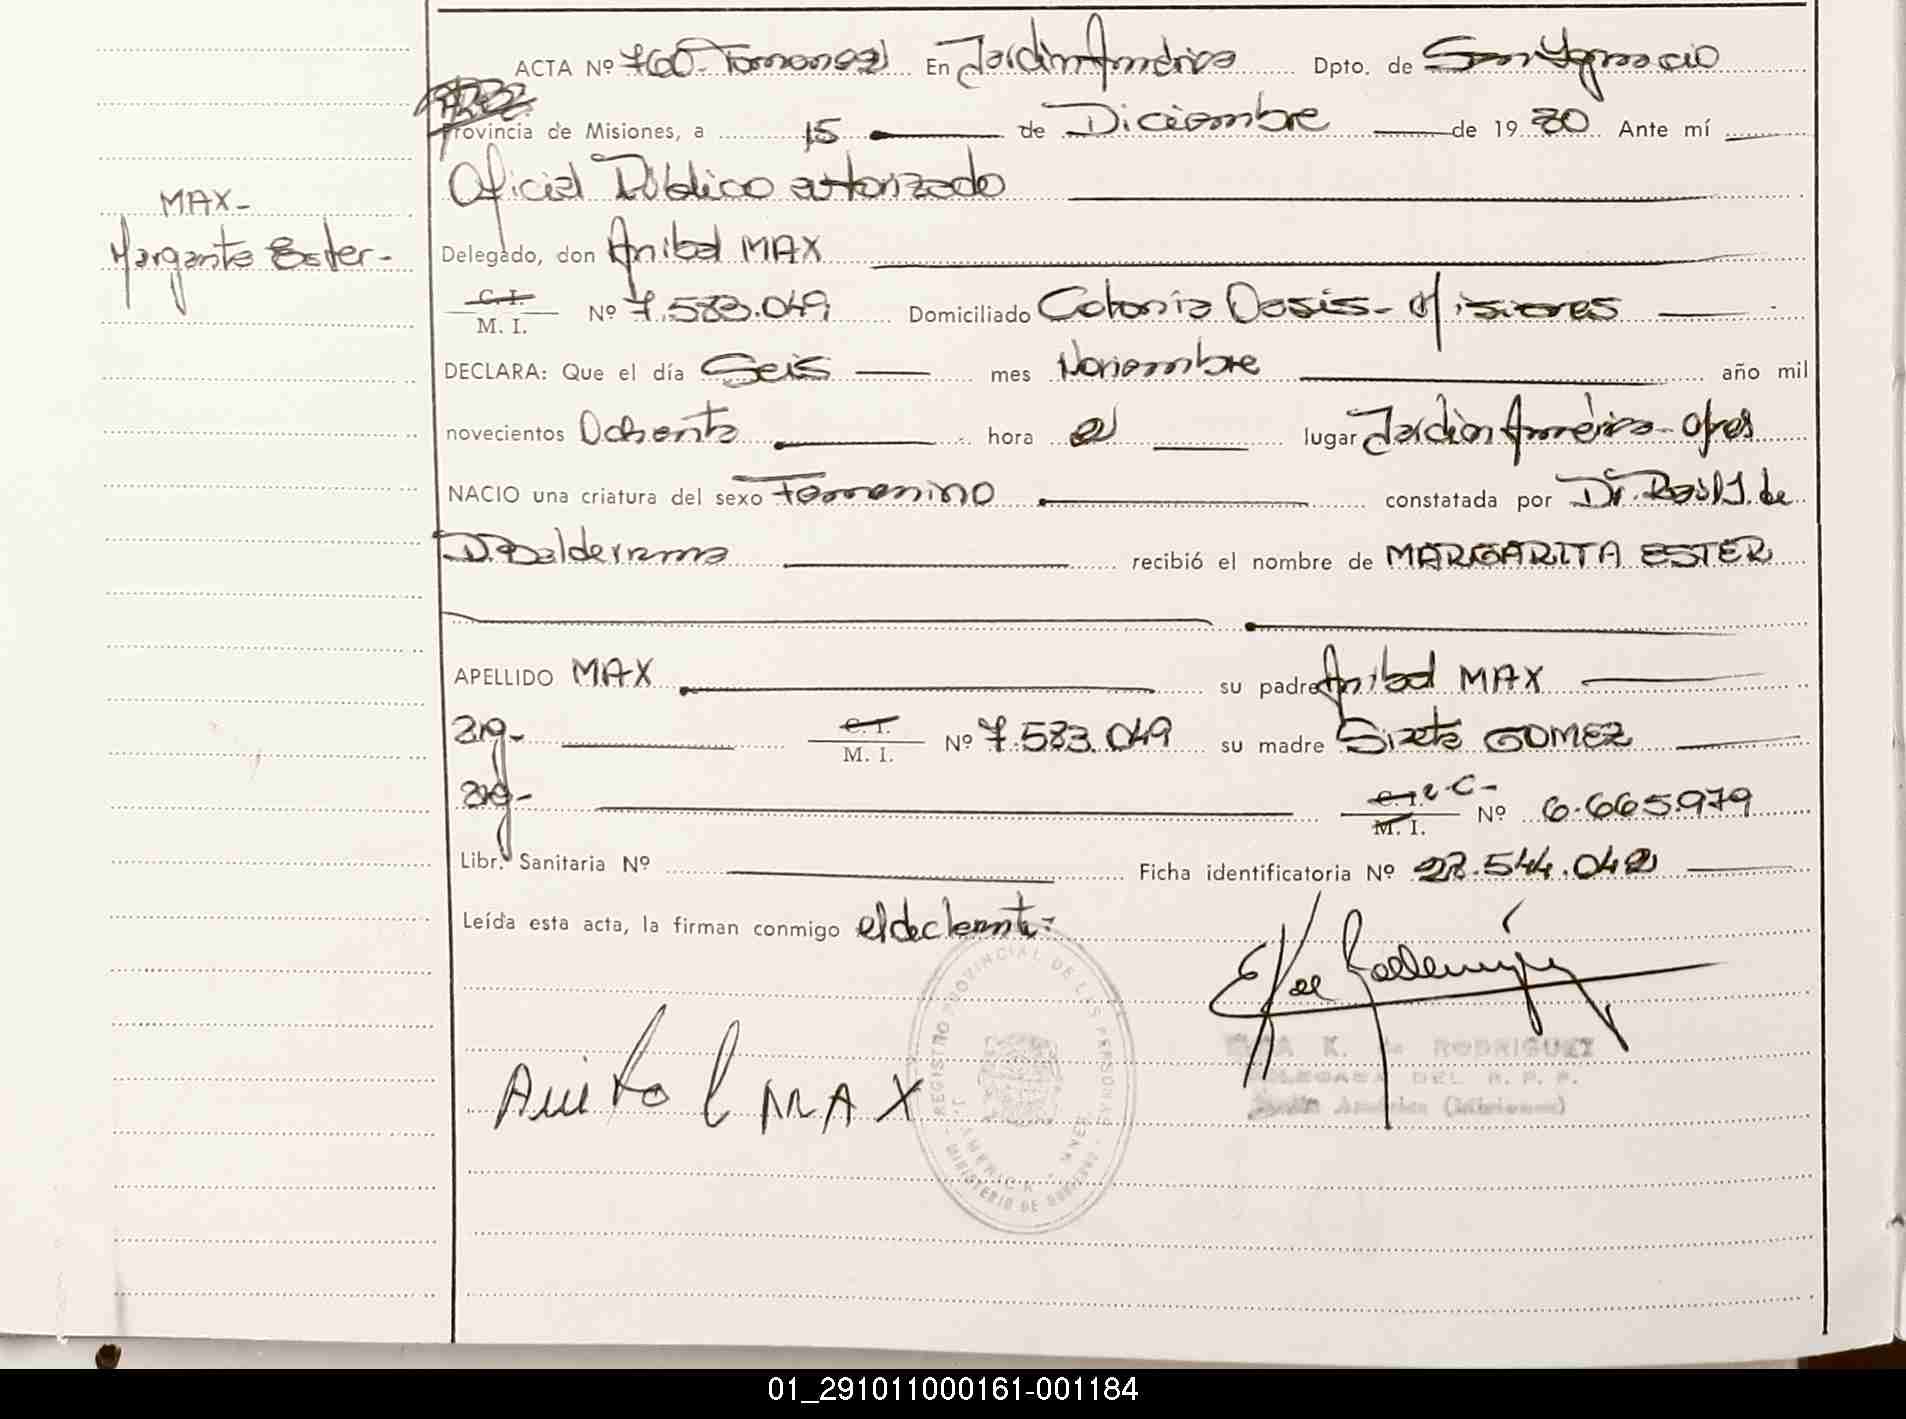 ACTA Nº 760- Tomo nº 2 En Jardín América Dpto. de San Ygnacio
Provincia de Misiones, a 15 de Diciembre de 19 80 Ante mí
Oficial Público autorizado
MAX-
Margarita Ester-
Delegado, don Anibal MAX
C. I.
M. I. Nº 7.583.049 Domiciliado Colonia Oasis- Misiones
DECLARA: Que el día Seis mes Noviembre año mil
novecientos Ochenta hora lugar Jardín América- Mnes
NACIO una criatura del sexo Femenino constatada por Dr. Raúl J. de
D. Balderrama recibió el nombre de MARGARITA ESTER
APELLIDO MAX su padre Anibal MAX
arg- C. I.
M. I. Nº 7.583.049 su madre Sixta GOMEZ
arg- C. I. L-C-
M. I. Nº 6.665.979
Libr. Sanitaria Nº Ficha identificatoria Nº 28.544.042
Leída esta acta, la firman conmigo el declarante:
REGISTRO PROVINCIAL DE LAS PERSONAS
MINISTERIO DE GOBIERNO
K. de RODRIGUEZ
DELEGADA DEL R. P. P.
Jardín América (Misiones)
MAX
01_291011000161-001184